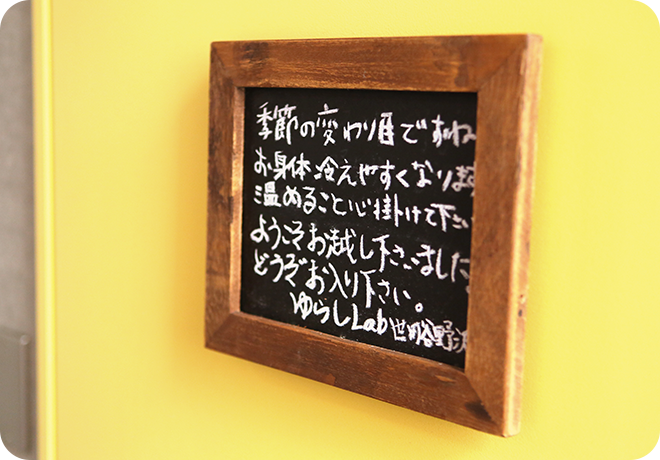 季節の変わり目ですね
お身体冷えやすくなります
温めること心掛けて下さい
ようこそお越し下さいました
どうぞお入り下さい。
ゆらしLab世田谷野沢